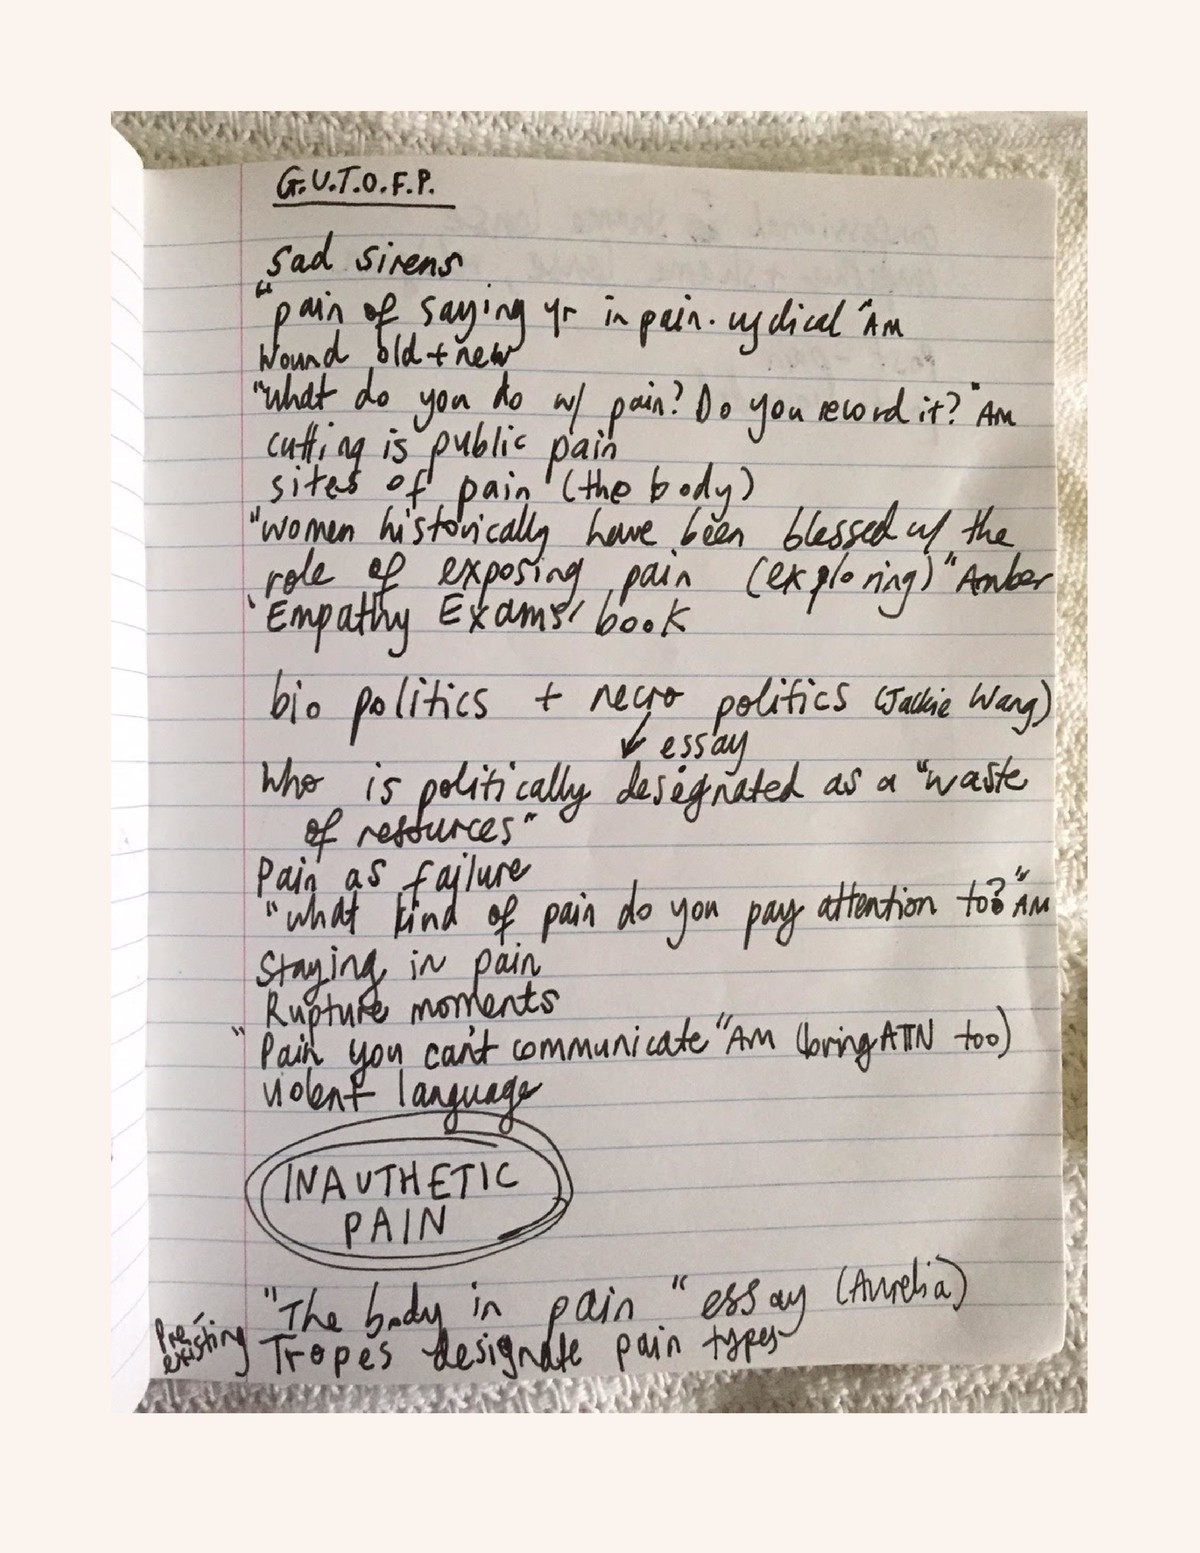 G.U.T.O.F.P.
Sad sirens
"pain of saying yr in pain. cyclical" AM
Wound old + new
"what do you do w/ pain? Do you record it?" AM
cutting is public pain
sites of pain (the body)
"women historically have been blessed w/ the
role of exposing pain (exploring)" Amber
'Empathy Exams' book
bio politics + necro politics (Jackie Wang)
essay
Who is politically designated as a "waste
of resources"
Pain as failure
"what kind of pain do you pay attention to?" AM
Staying in pain
Rupture moments
"Pain you can't communicate" AM (bring ATTN too)
violent language
INAUTHETIC
PAIN
"The body in pain" essay (Aurelia)
Pre-existing Tropes designate pain types